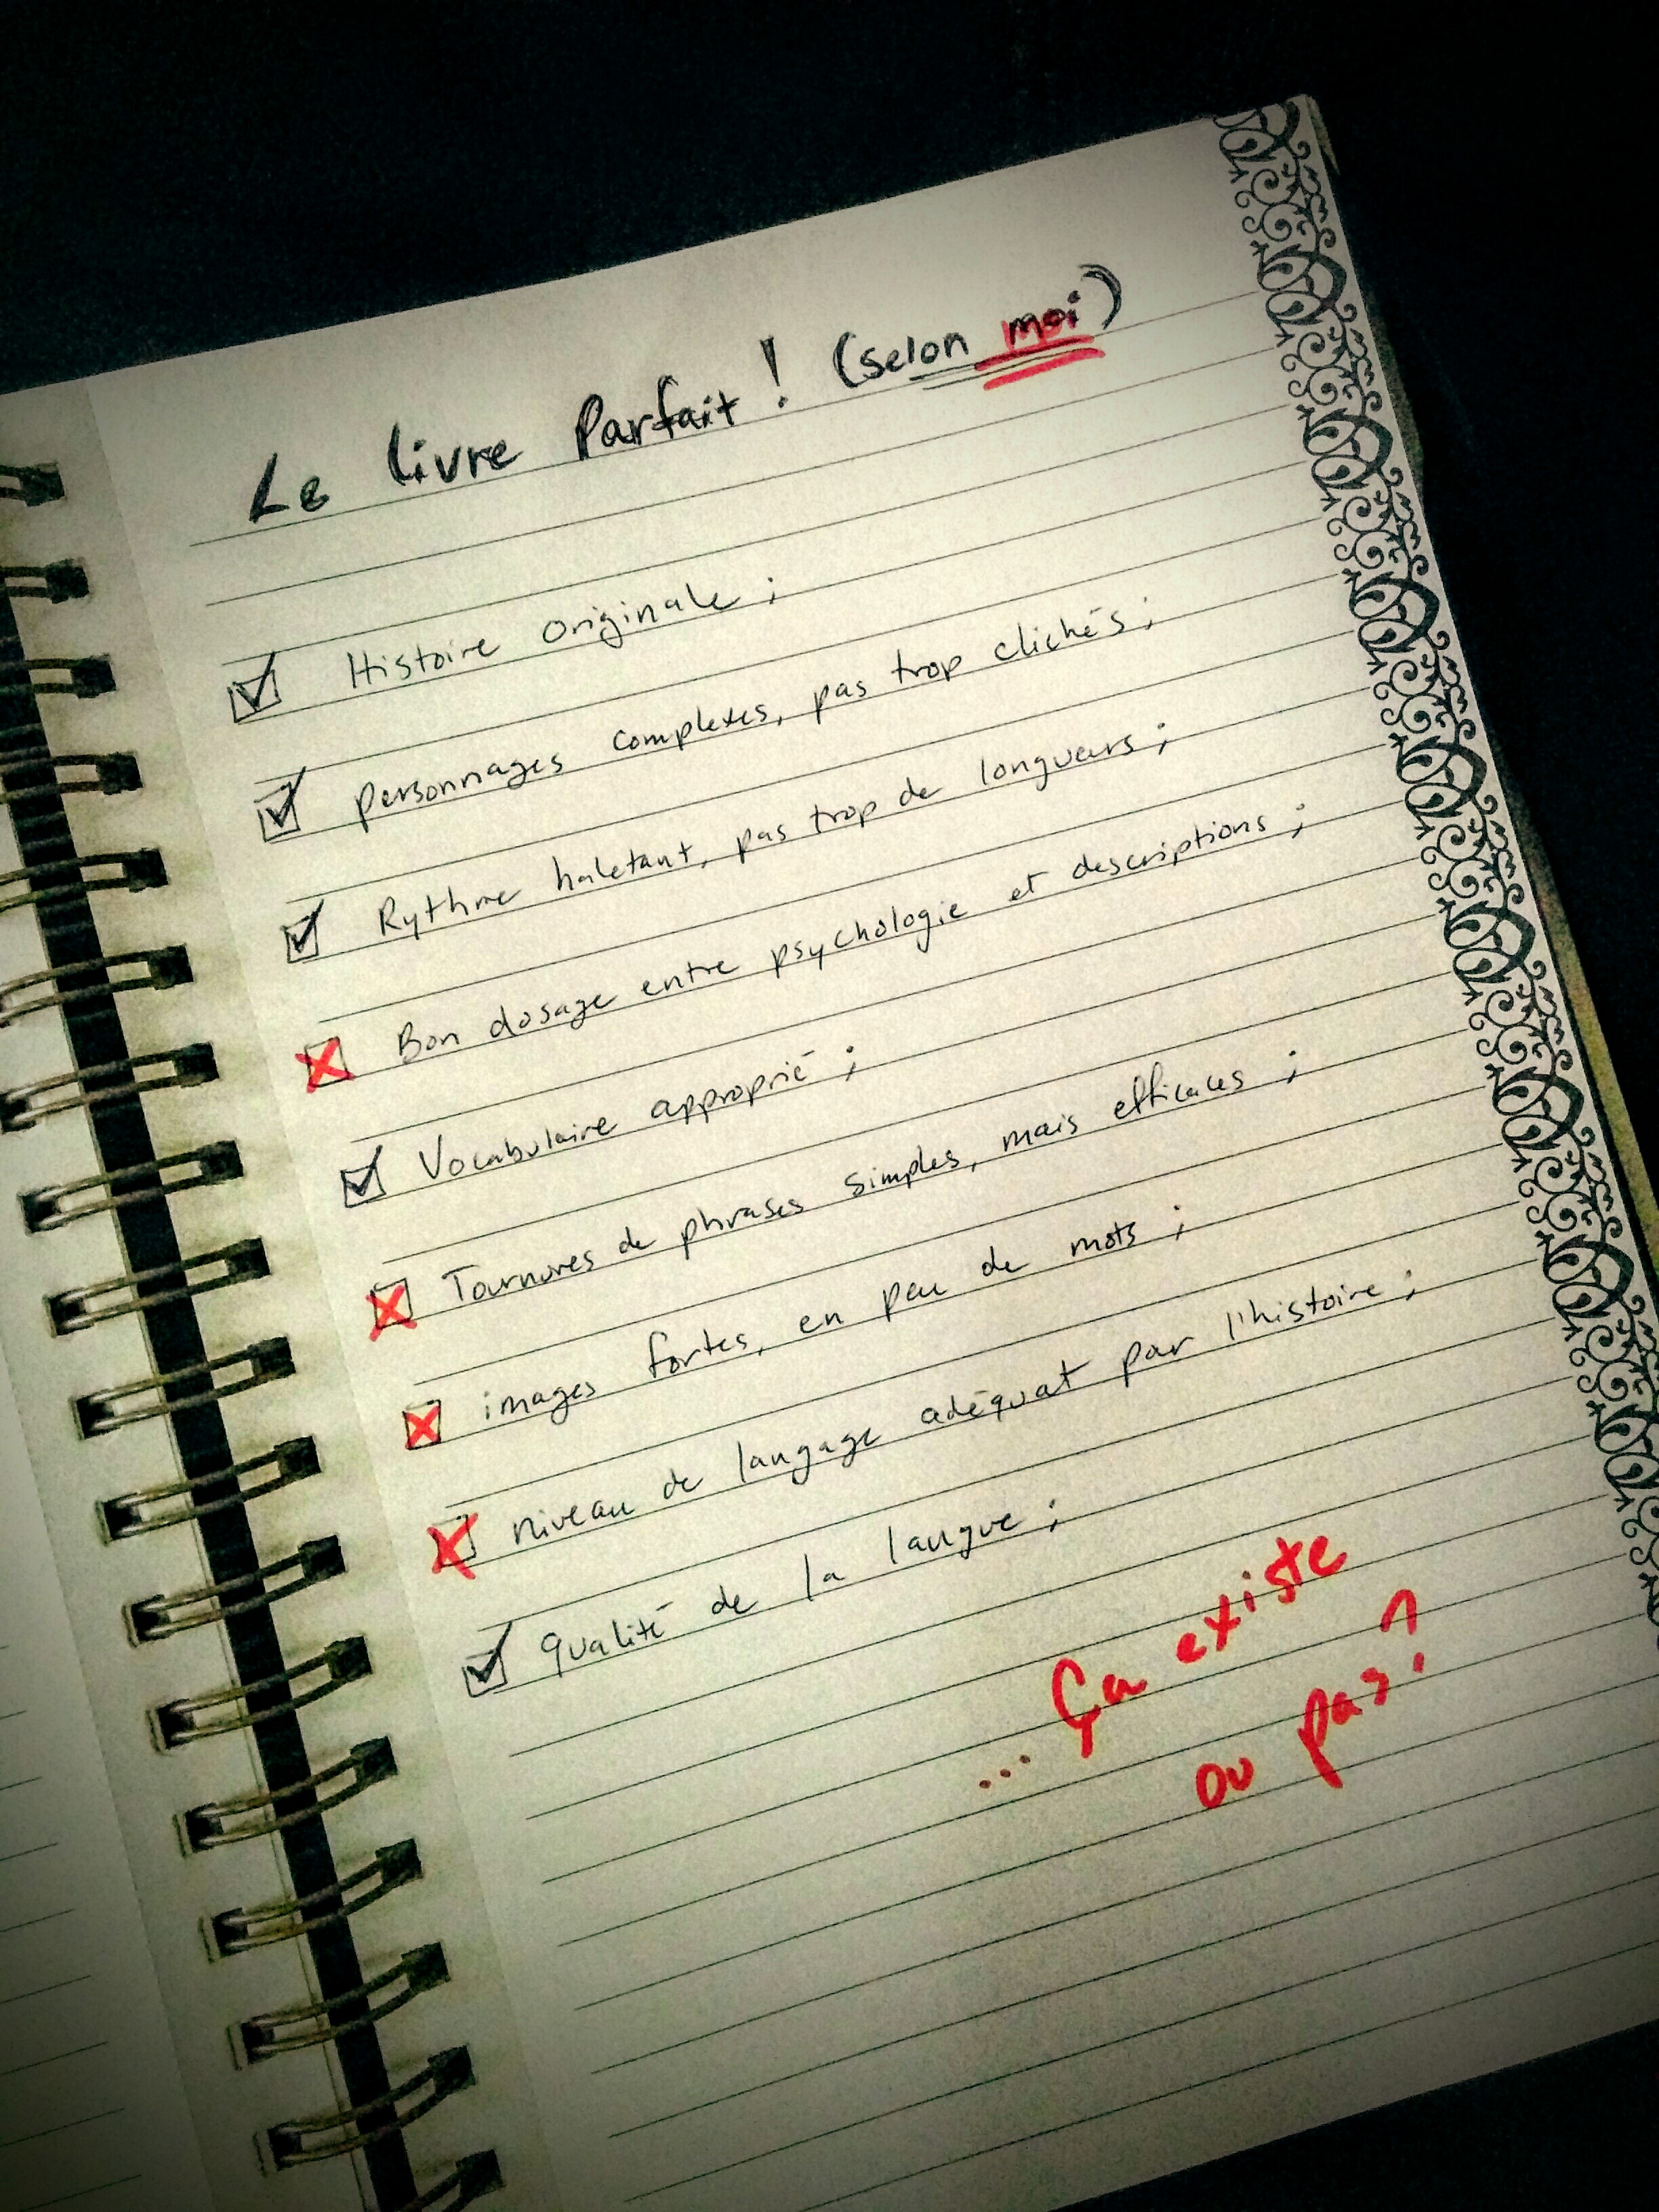 Le livre Parfait ! (selon moi)
Histoire originale ;
personnages complexes, pas trop clichés ;
Rythme haletant, pas trop de longueurs ;
Bon dosage entre psychologie et descriptions ;
Vocabulaire approprié ;
Tournures de phrases simples, mais efficaces ;
images fortes, en peu de mots ;
niveau de langage adéquat par l'histoire ;
qualité de la langue ;
... Ça existe
ou pas ?